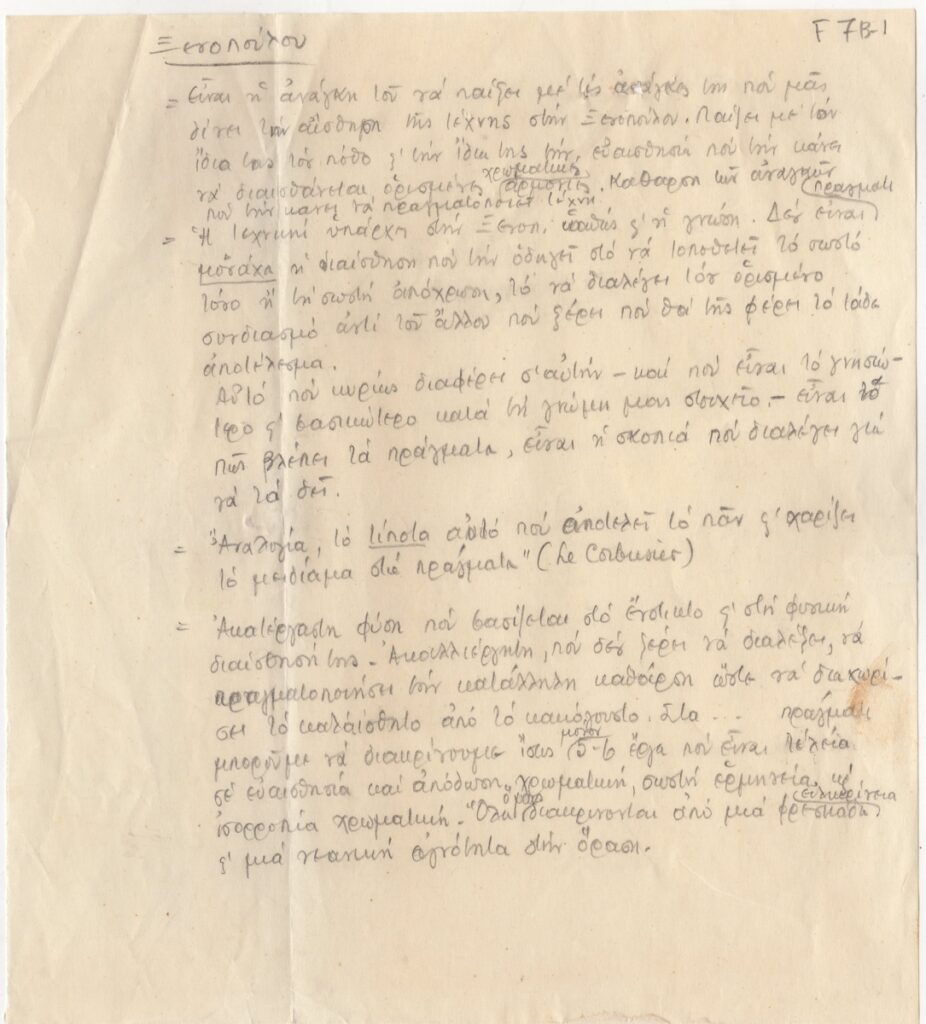 F 7B-1
Ξενοπούλου
= Εἶναι ἡ ἀνάγκη τοῦ νά παίξει μέ τίς ἀνάγκες της πού μᾶς
δίνει τήν αἴσθηση τῆς τέχνης στήν Ξενοπούλου. Παίζει μέ τόν
ἴδιο της τόν πόθο ϗ τήν ἴδια της τήν εὐαισθησία πού τήν κάνει
νά διαισθάνεται ὁρισμένες χρωματικές ἁρμονίες. Κάθαρση τῶν ἀναγκῶν
πού τήν κάνει νά πραγματοποιεῖ τέχνη.
= Ἡ τεχνική ὑπάρχει στήν Ξενοπ. καθώς ϗ ἡ γνώση. Δέν εἶναι πραγματι
μονάχα ἡ διαίσθηση πού τήν ὁδηγεῖ στό νά τοποθετεῖ τό σωστό
τόνο ἤ τή σωστή ἀπόχρωση, τό νά διαλέγει τόν ὁρισμένο
συνδιασμό ἀντί τοῦ ἄλλου πού ξέρει πού θά τῆς φέρει τό τάδε
ἀποτέλεσμα.
Αὐτό πού κυρίως διαφέρει σ'αὐτήν – καί πού εἶναι τό γνησιώ-
τερο ϗ βασικώτερο κατά τή γνώμη μου στοιχεῖο – εἶναι τό
πῶς βλέπει τά πράγματα, εἶναι ἡ σκοπιά πού διαλέγει γιά
νά τά δεῖ.
= "Ἀναλογία, τό τίποτα αὐτό πού ἀποτελεῖ τό πᾶν ϗ χαρίζει
τό μειδίαμα στά πράγματα" (Le Corbusier)
= Ἀκατέργαστη φύση πού βασίζεται στό ἔνστικτο ϗ στή φυσική
διαίσθησή της. Ἀκαλλιέργητη, πού δέν ξέρει νά διαλέξει, νά
πραγματοποιήσει τήν κατάλληλη κάθαρση ὥστε νά διαχωρί-
σει τό καλαίσθητο ἀπό τό κακόγουστο. Στα ... πράγματι
μποροῦμε νά διακρίνουμε ἴσως μόνον 5-6 ἔργα πού εἶναι τέλεια
σέ εὐαισθησία καί ἀπόδωση χρωματική, σωστή ἑρμηνεία ϗ
ἰσορροπία χρωματική. Ὅλα ὅμως διακρίνονται ἀπό μιά φρεσκάδα εἰλικρίνεια
ϗ μιά νεανική ἁγνότητα στήν ὅραση.